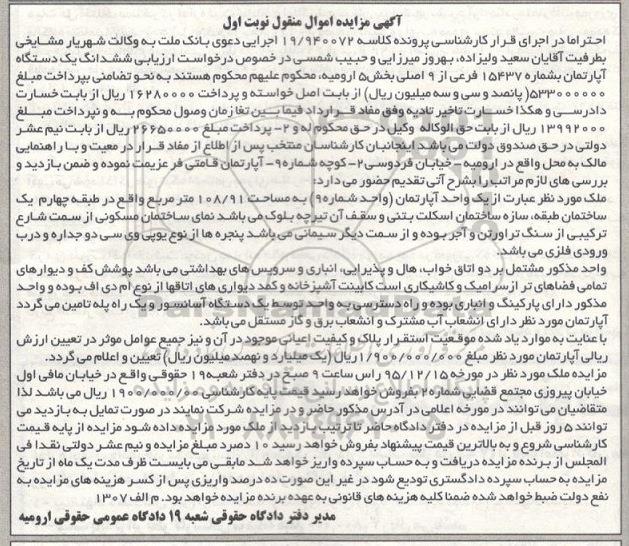 آگهی مزایده اموال منقول نوبت اول
احتراما در اجرای قرار کارشناسی پرونده کلاسه ۱۹/۹۴۰۰۷۲ اجرایی دعوی بانک ملت به وکالت شهریار مشایخی
بطرفیت آقایان سعید ولیزاده، بهروز میرزایی و حبیب شمسی در خصوص درخواست ارزیابی ششدانگ یک دستگاه
آپارتمان بشماره ۱۵۴۳۷ فرعی از ۹ اصلی بخش۵ ارومیه، محکوم علیهم محکوم هستند به نحو تضامنی بپرداخت مبلغ
۵۳۳۰۰۰۰۰۰( پانصد و سی و سه میلیون ریال) از بابت اصل خواسته و پرداخت ۱۶۲۸۰۰۰۰ ریال از بابت خسارت
دادرسی و هکذا خسارت تاخیر تادیه وفق مفاد قرارداد فیمابین تغا زمان وصول محکوم به و نپرداخت مبلغ
۱۳۹۹۲۰۰۰ ریال از بابت حق الوکاله وکیل در حق محکوم له و ۲- پرداخت مبلغ ۲۶۶۵۰۰۰۰ ریال از بابت نیم عشر
دولتی در حق صندوق دولت می باشد. اینجانبان کارشناسان منتخب پس از اطلاع از مفاد قرار در معیت و با راهنمایی
مالک به محل واقع در ارومیه-خیابان فردوسی۲- کوچه شماره۹- آپارتمان قامتی فر عزیمت نموده و ضمن بازدید و
بررسی های لازم مراتب را بشرح آتی تقدیم حضور می دارد:
ملک مورد نظر عبارت از یک واحد آپارتمان (واحد شماره۹) به مساحت ۱۰۸/۹۱ متر مربع واقع در طبقه چهارم یک
ساختمان طبقه، سازه ساختمان اسکلت بتنی و سقف آن تیرچه بلوک می باشد نمای ساختمان مسکونی از سمت شارع
ترکیبی از سنگ تراورتن و آجر بوده و از سمت دیگر سیمانی می باشد پنجره ها از نوع یوپی وی سی دو جداره و درب
ورودی فلزی می باشد.
واحد مذکور مشتمل بر دو اتاق خواب، هال و پذیرایی، انباری و سرویس های بهداشتی می باشد پوشش کف و دیوارهای
تمامی فضاهای تر از سرامیک و کاشیکاری است کابینت آشپزخانه و کمد دیواری های اتاقها از نوع ام دی اف بوده و واحد
مذکور دارای پارکینگ و انباری بوده و راه دسترسی به واحد توسط یک دستگاه آسانسور و یک راه پله تامین می گردد
آپارتمان مورد نظر دارای انشعاب آب مشترک و انشعاب برق و گاز مستقل می باشد.
با عنایت به موارد یاد شده موقعیت استقرار پلاک و کیفیت اعیانی موجود در آن و نیز جمیع عوامل موثر در تعیین ارزش
ریالی آپارتمان مورد نظر مبلغ ۱/۹۰۰/۰۰۰/۰۰۰ریال (یک میلیارد و نهصد میلیون ریال) تعیین و اعلام می گردد.
مزایده ملک مورد نظر در مورخه ۹۵/۱۲/۱۵ راس ساعت ۹ صبح در دفتر شعبه۱۹ حقوقی واقع در خیابان مافی اول
خیابان پیروزی مجتمع قضایی شماره۲ بفروش خواهد رسید قیمت پایه کارشناسی ۱۹۰۰/۰۰۰/۰۰ ریال می باشد لذا
متقاضیان می توانند در مورخه اعلامی در آدرس مذکور حاضر و در مزایده شرکت نمایند در صورت تمایل به بازدید می
توانند ۵ روز قبل از مزایده در دفتر دادگاه حاضر تا ترتیب بازدید از ملک مورد مزایده داده شود مزایده از پایه قیمت
کارشناسی شروع و به بالاترین قیمت پیشنهاد بفروش خواهد رسید ۱۰ دصرد مبلغ مزایده و نیم عشر دولتی نقدا فی
المجلس از برنده مزایده دریافت و به حساب سپرده واریز خواهد شد مابقی می بایست ظرف مدت یک ماه از تاریخ
مزایده به حساب سپرده دادگستری تودیع شود در غیر این صورت ده درصد واریزی پس از کسر هزینه های مزایده به
نفع دولت ضبط خواهد شده ضمنا کلیه هزینه های قانونی به عهده برنده مزایده خواهد بود. م الف ۱۳۰۷
مدیر دفتر دادگاه حقوقی شعبه ۱۹ دادگاه عمومی حقوقی ارومیه